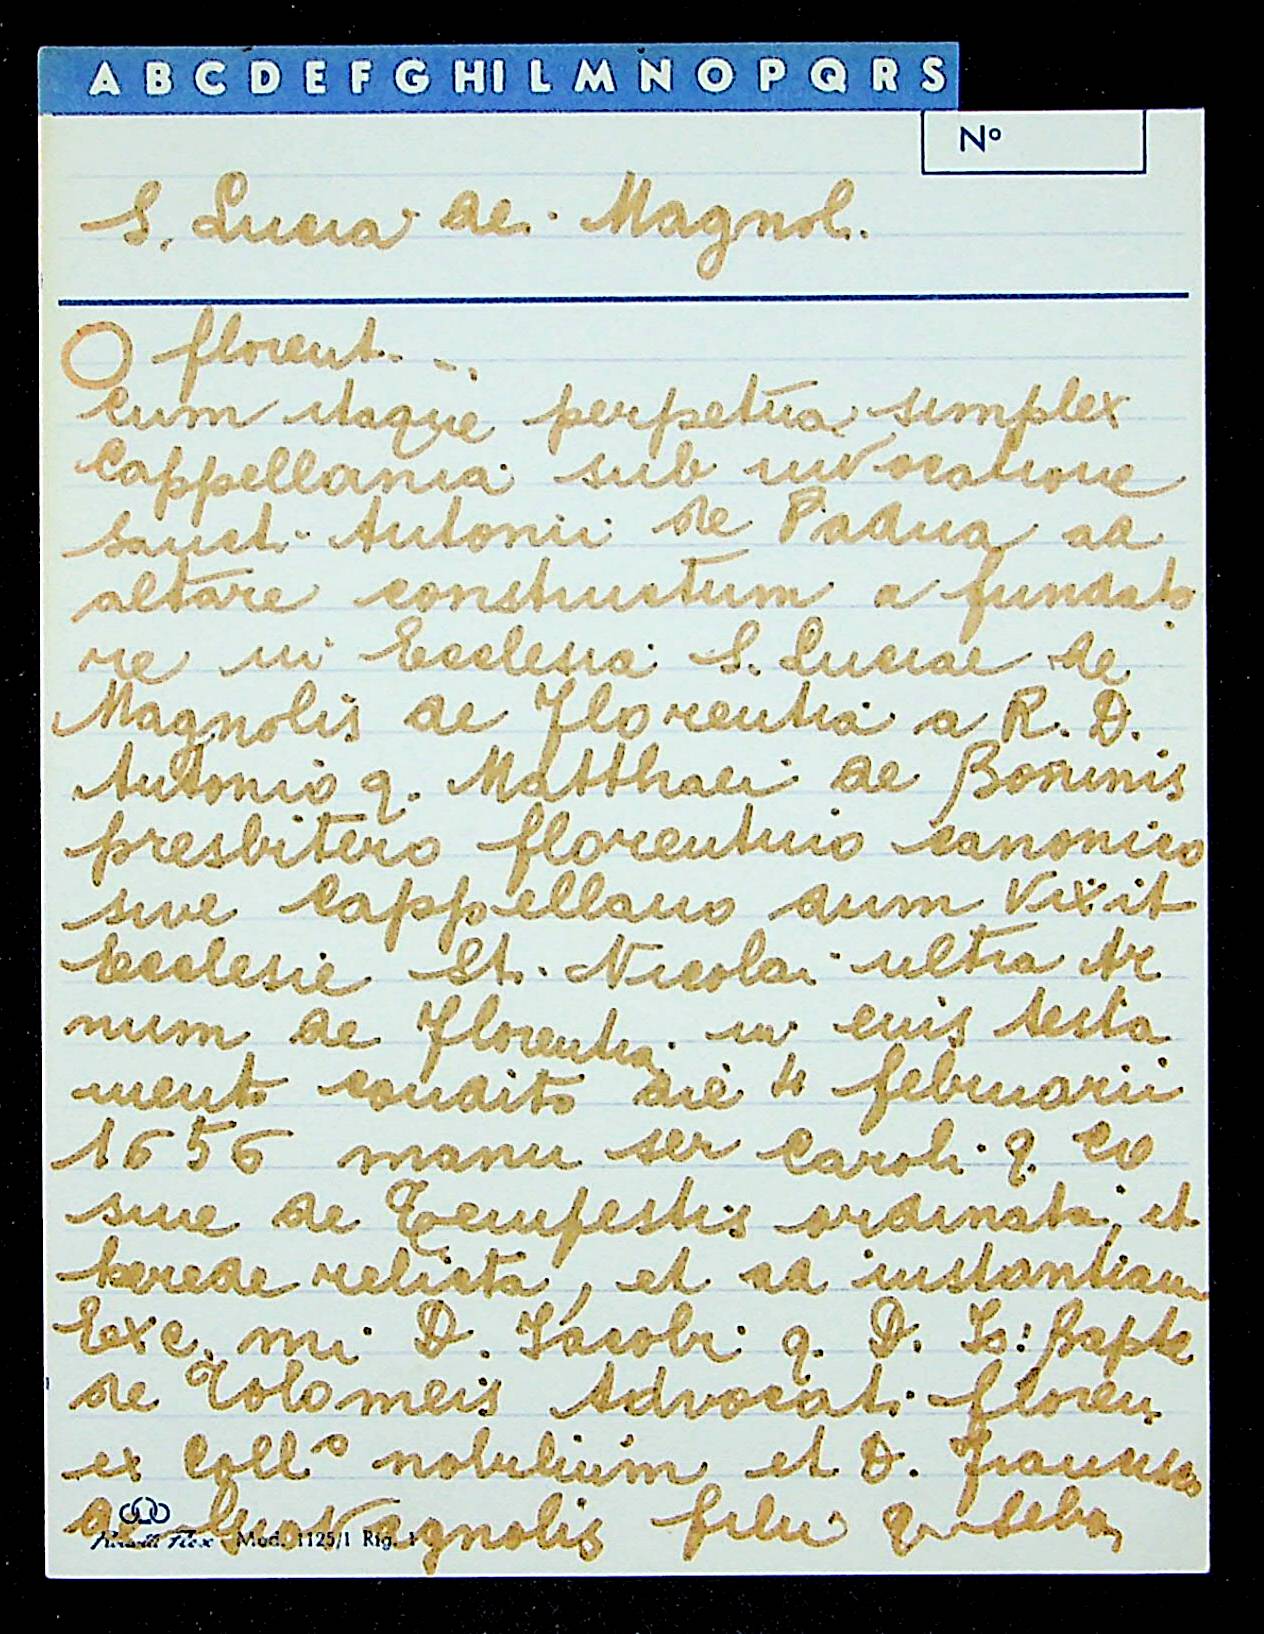 A B C D E F G HI L M N O P Q R S
Nº
S. Lucia de Magnol.
O florent.
Cum itaque perpetua simplex
Cappellania sub invocatione
Sanct. Antonii de Padua ad
altare constructum a fundato
re in Ecclesia S. Luciae de
Magnolis de Florentia a R. D.
Antonio q. Matthaei de Boninis
presbitero florentino canonico
sive Cappellano dum vixit
Ecclesie St. Nicolai ultra Ar
num de Florentia in eius testa
mento condito die 4 februarii
1656 manu ser Caroli q. Co
sme de Tempestis ordinata, et
herede relicta, et ad instantiam
Exc.mi D. Jacobi q. D. Jo: Bapte
de Tolomeis Advocati floren
ex Coll.o nobilium et D. Francisco
de filii q.
Mod. 1125/1 Rig. 1